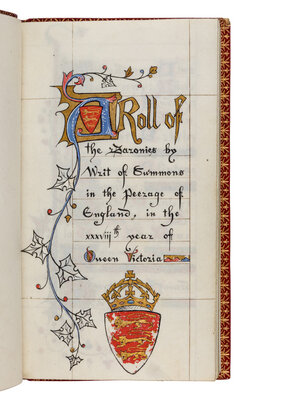 A Roll of
the Baronies by
Writ of Summons
in the Peerage of
England, in the
xxxviiith year of
Queen Victoria